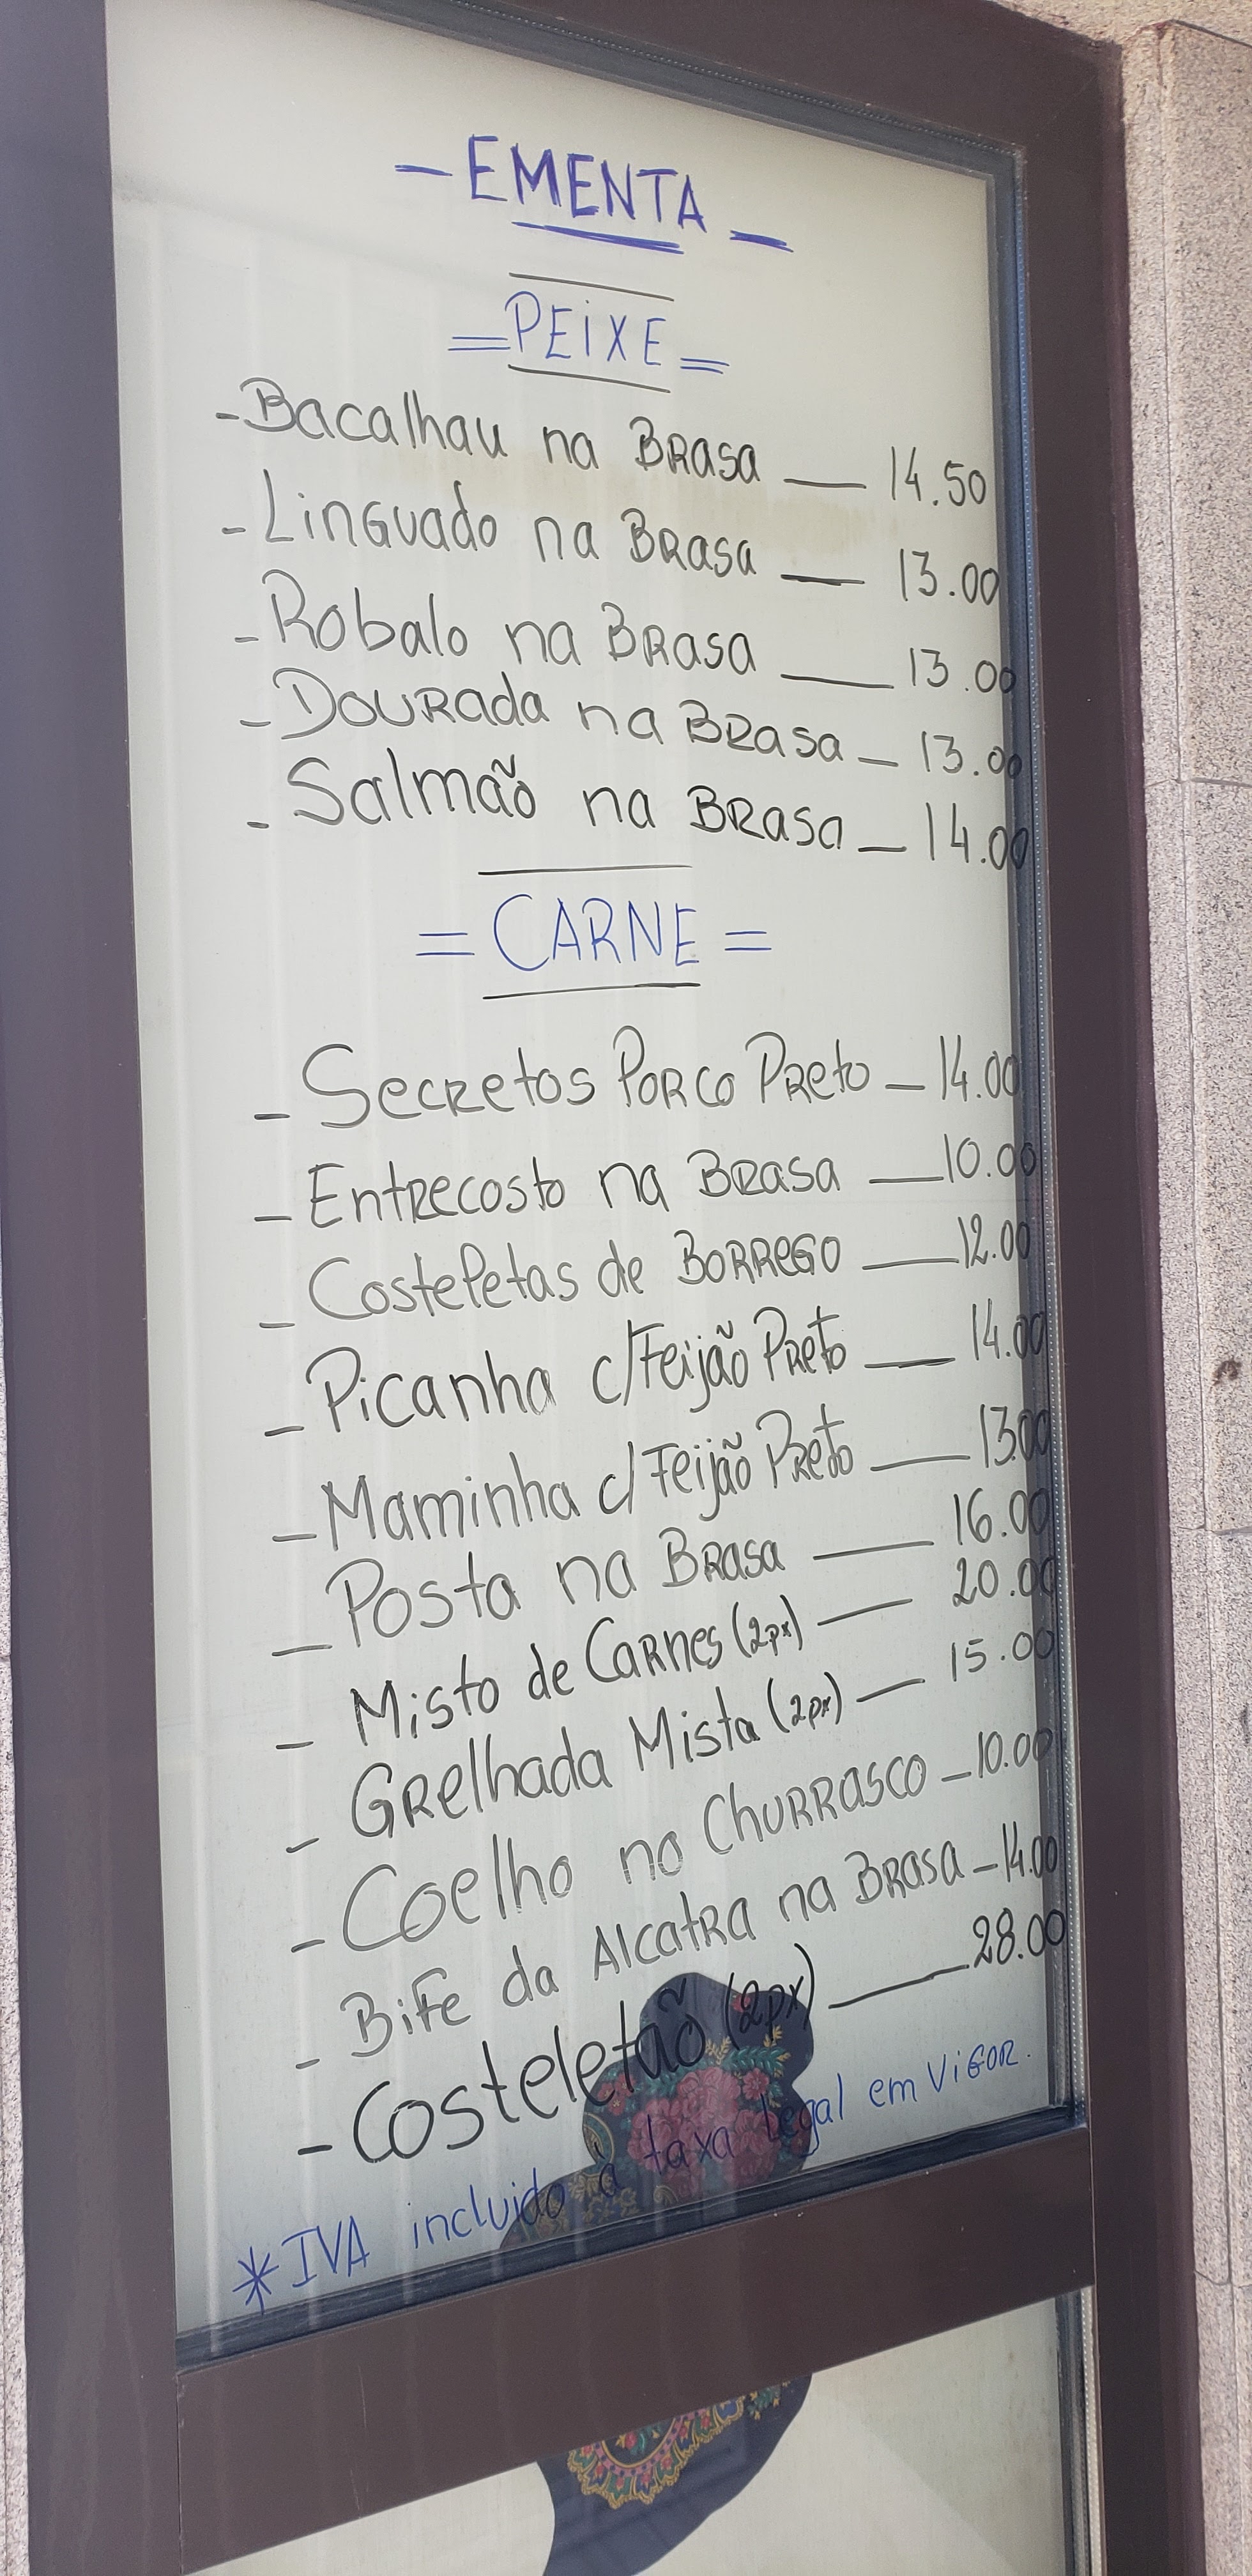 - EMENTA -
= PEIXE =
- Bacalhau na Brasa — 14.50
- Linguado na Brasa — 13.00
- Robalo na Brasa — 13.00
- Dourada na Brasa — 13.00
- Salmão na Brasa — 14.00
= CARNE =
- Secretos Porco Preto — 14.00
- Entrecosto na Brasa — 10.00
- Costeletas de Borrego — 12.00
- Picanha c/Feijão Preto — 14.00
- Maminha c/Feijão Preto — 13.00
- Posta na Brasa — 16.00
- Misto de Carnes (2px) — 20.00
- Grelhada Mista (2px) — 15.00
- Coelho no Churrasco — 10.00
- Bife da Alcatra na Brasa — 14.00
- Costeletão (2px) — 28.00
*IVA incluido à taxa legal em vigor.